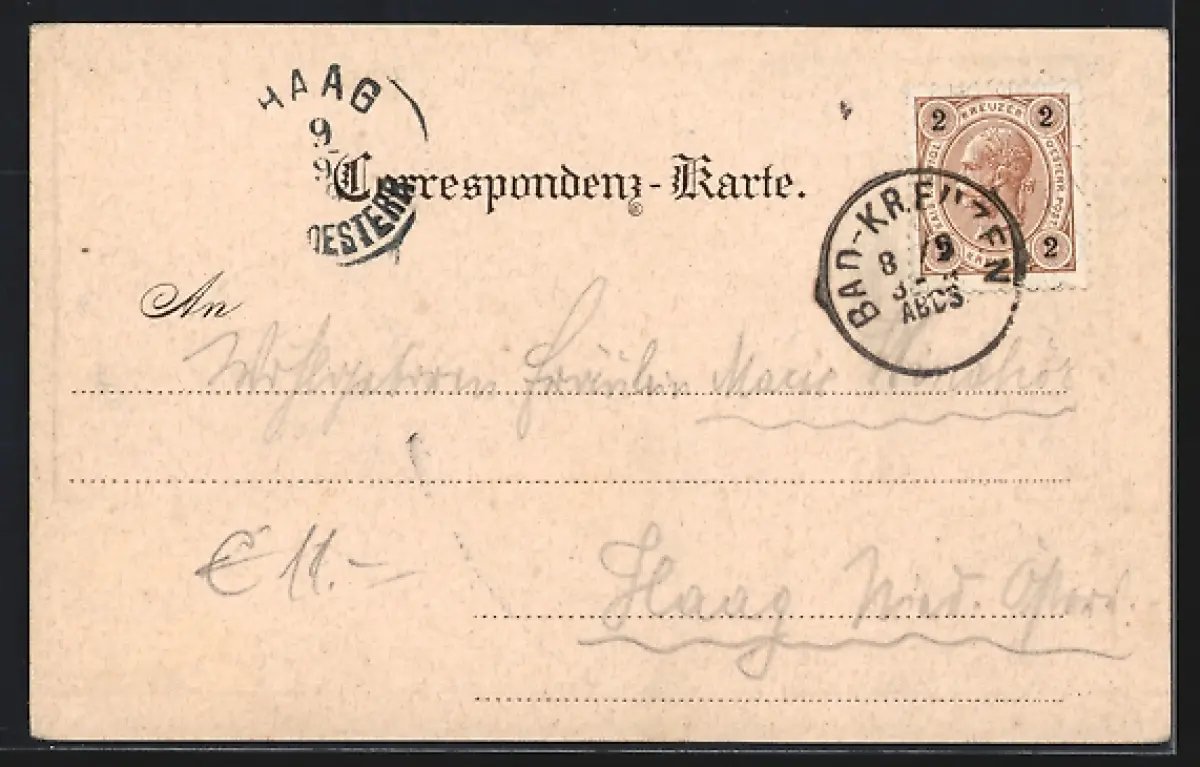 HAAG
9
9
OESTERR
Correspondenz-Karte.
2 KREUZER 2
OESTERR. POST
2 2
BAD-KREUZEN
8 9
ABDS
An
Wohlgeboren Fräulein Marie
€ 11.-
Haag Nied. Österr.